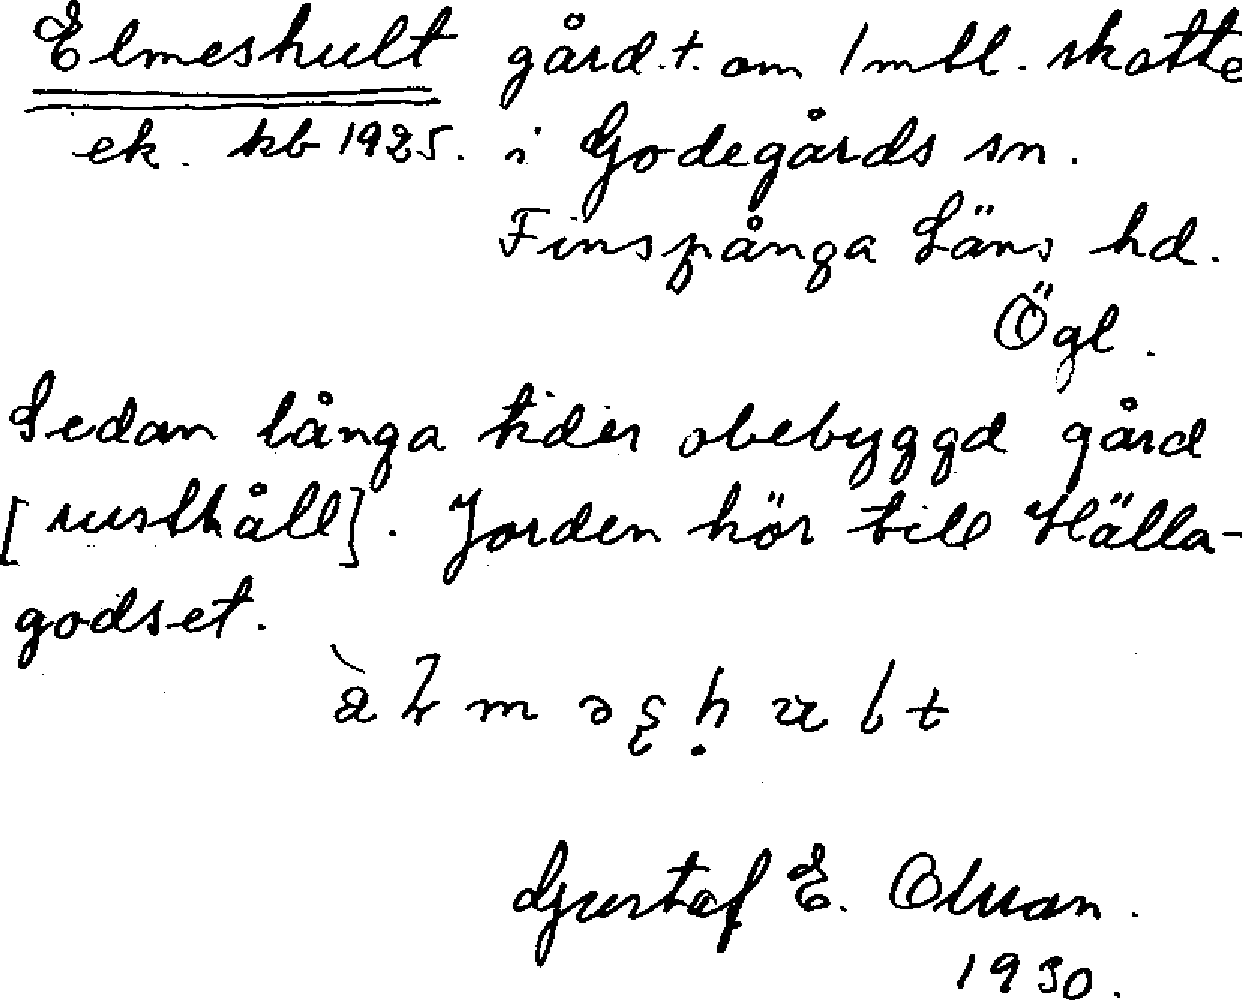 Elmeshult gård.t. om 1 mtl. skatte
ek. kb 1925. i Godegårds sn.
Finspånga Läns hd.
Ögl.
Sedan långa tider obebyggd gård
[rusthåll]. Jorden hör till Hälla-
godset.
Gustaf E. Olsson.
1930.